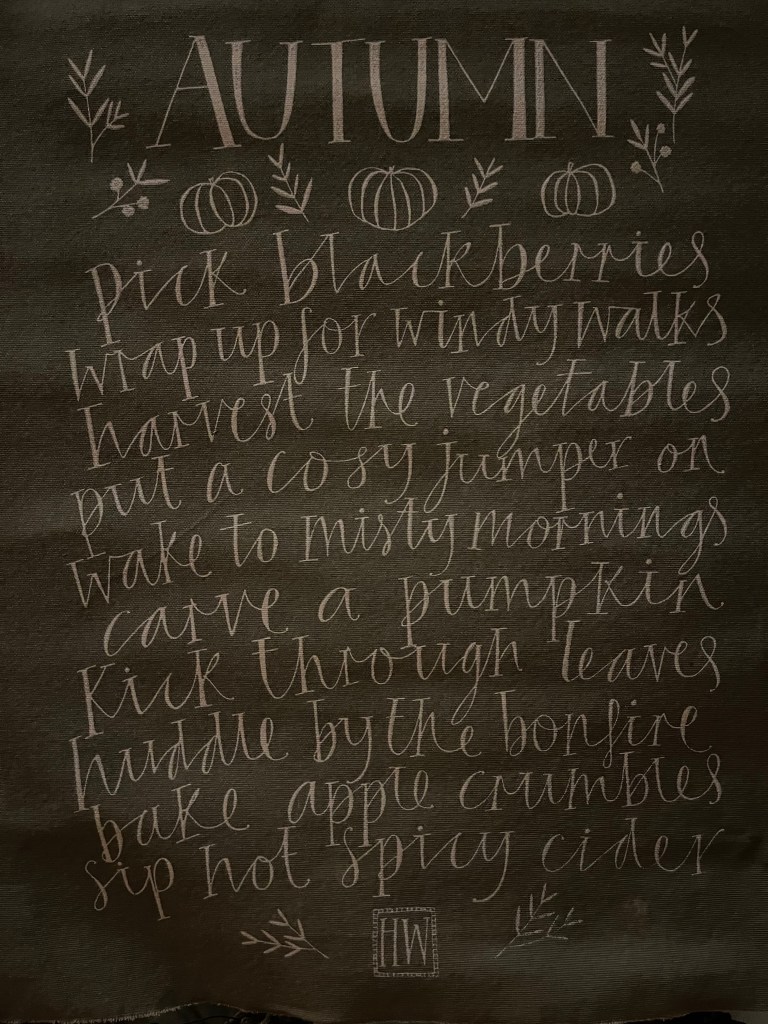 AUTUMN
Pick blackberries
wrap up for windy walks
harvest the vegetables
put a cosy jumper on
wake to misty mornings
carve a pumpkin
Kick through leaves
huddle by the bonfire
bake apple crumbles
sip hot spicy cider
HW